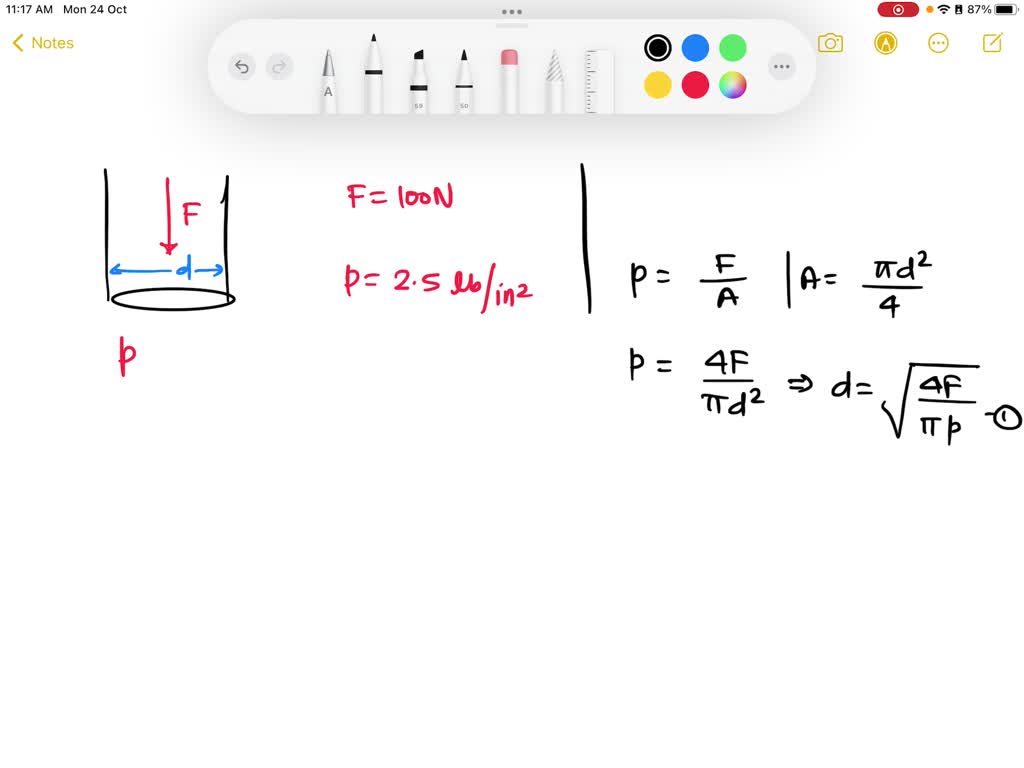 11:17 AM Mon 24 Oct
87%
Notes
A
59
50
F
d
p
F = 100N
p = 2.5 lb/in2
p = F/A | A = πd²/4
p = 4F/πd² ⇒ d = √(4F/πp) -①